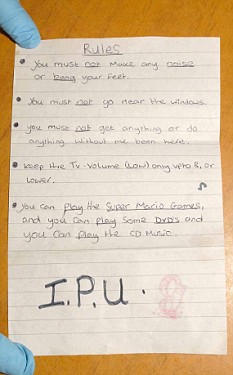 Rules
You must not make any noise
or bang your feet.
You must not go near the windows.
you must not get anything or do
anything without me been here.
Keep the Tv-Volume (Low) only upto 8, or
lower.
You can play the Super Mario Games,
and you can play some DVD's and
you can play the CD Music.
I.P.U.